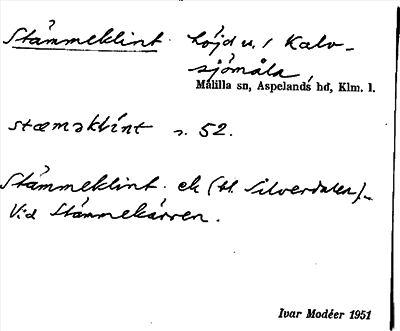 Stämmeklint. höjd u. / Kalv-
sjömåla
Målilla sn, Aspelands hd, Klm. l.
stæməklínt s. 52.
Stämmeklint. ek (bl. Silverdalen).
Vid Stämmekärren.
Ivar Modéer 1951